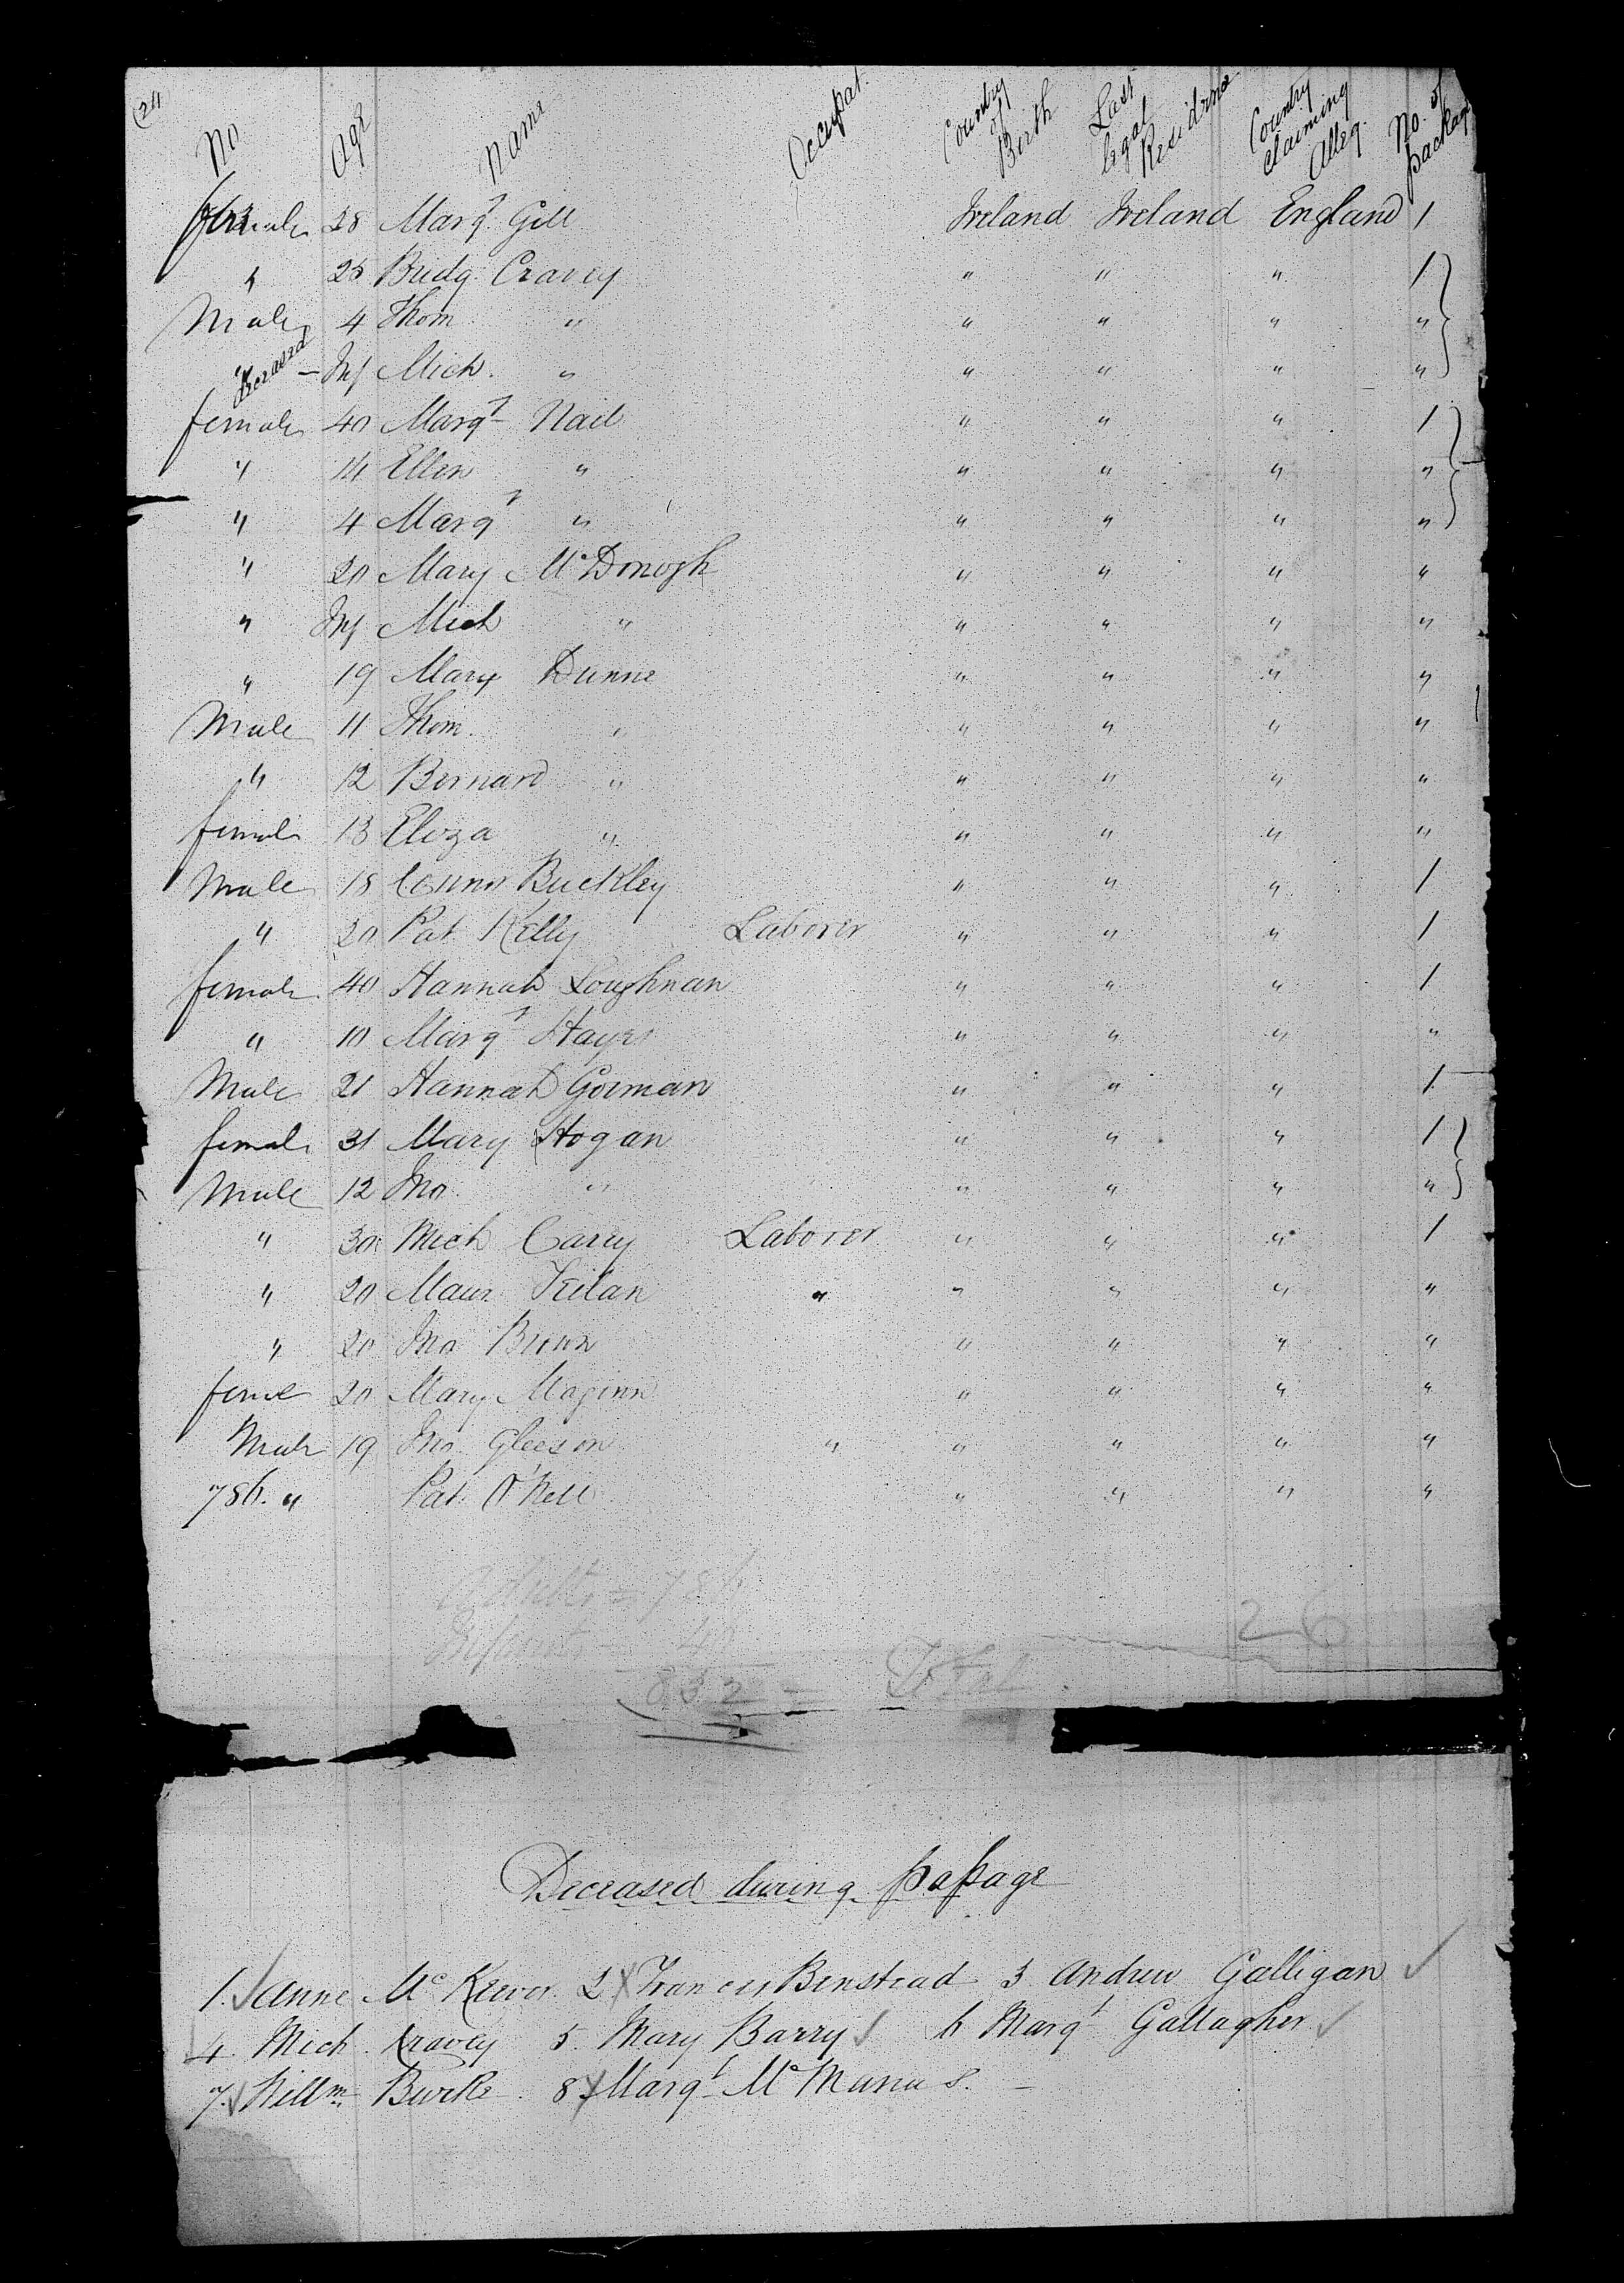 (24)
No Age Name Occupat. Country of Birth Last legal Residence Country claiming Alleg. No. of package
female 28 Margt Gill Ireland Ireland England 1
" 25 Bridg. Cravey " " " 1
Male 4 Thom " " " " "
" Deceased — Inf Mich. " " " " "
female 40 Margt Nail " " " 1
" 14 Ellen " " " " "
" 4 Margt " " " " "
" 20 Mary McDonogh " " " "
" Inf Mich " " " " "
" 19 Mary Dunne " " " "
Male 11 Thom. " " " " "
" 12 Bernard " " " " "
female 13 Eliza " " " " "
Male 18 Buckley " " " 1
" 20 Pat Kelly Laborer " " " 1
female 40 Hannah Loughnan " " " 1
" 10 Margt Hayes " " " "
Male 21 Hannah Gorman " " " 1
female 31 Mary Hogan " " " 1
Male 12 Jno. " " " " "
" 30 Mich Carey Laborer " " " 1
" 20 Maur. " " " " "
" 20 Jno " " " "
feme 20 Mary Maginn " " " "
Male 19 Jno. Gleeson " " " " "
786. " Pat. O'Neil " " " "
Adults = 786
Infants 26
832 = Total
Deceased during passage
1. Anne McKeevor 2 Francis Binstead 3 Andrew Galligan
4. Mich. Cravey 5. Mary Barry 6 Margt Gallagher
7. Willm Burke. 8 Margt McManus. —